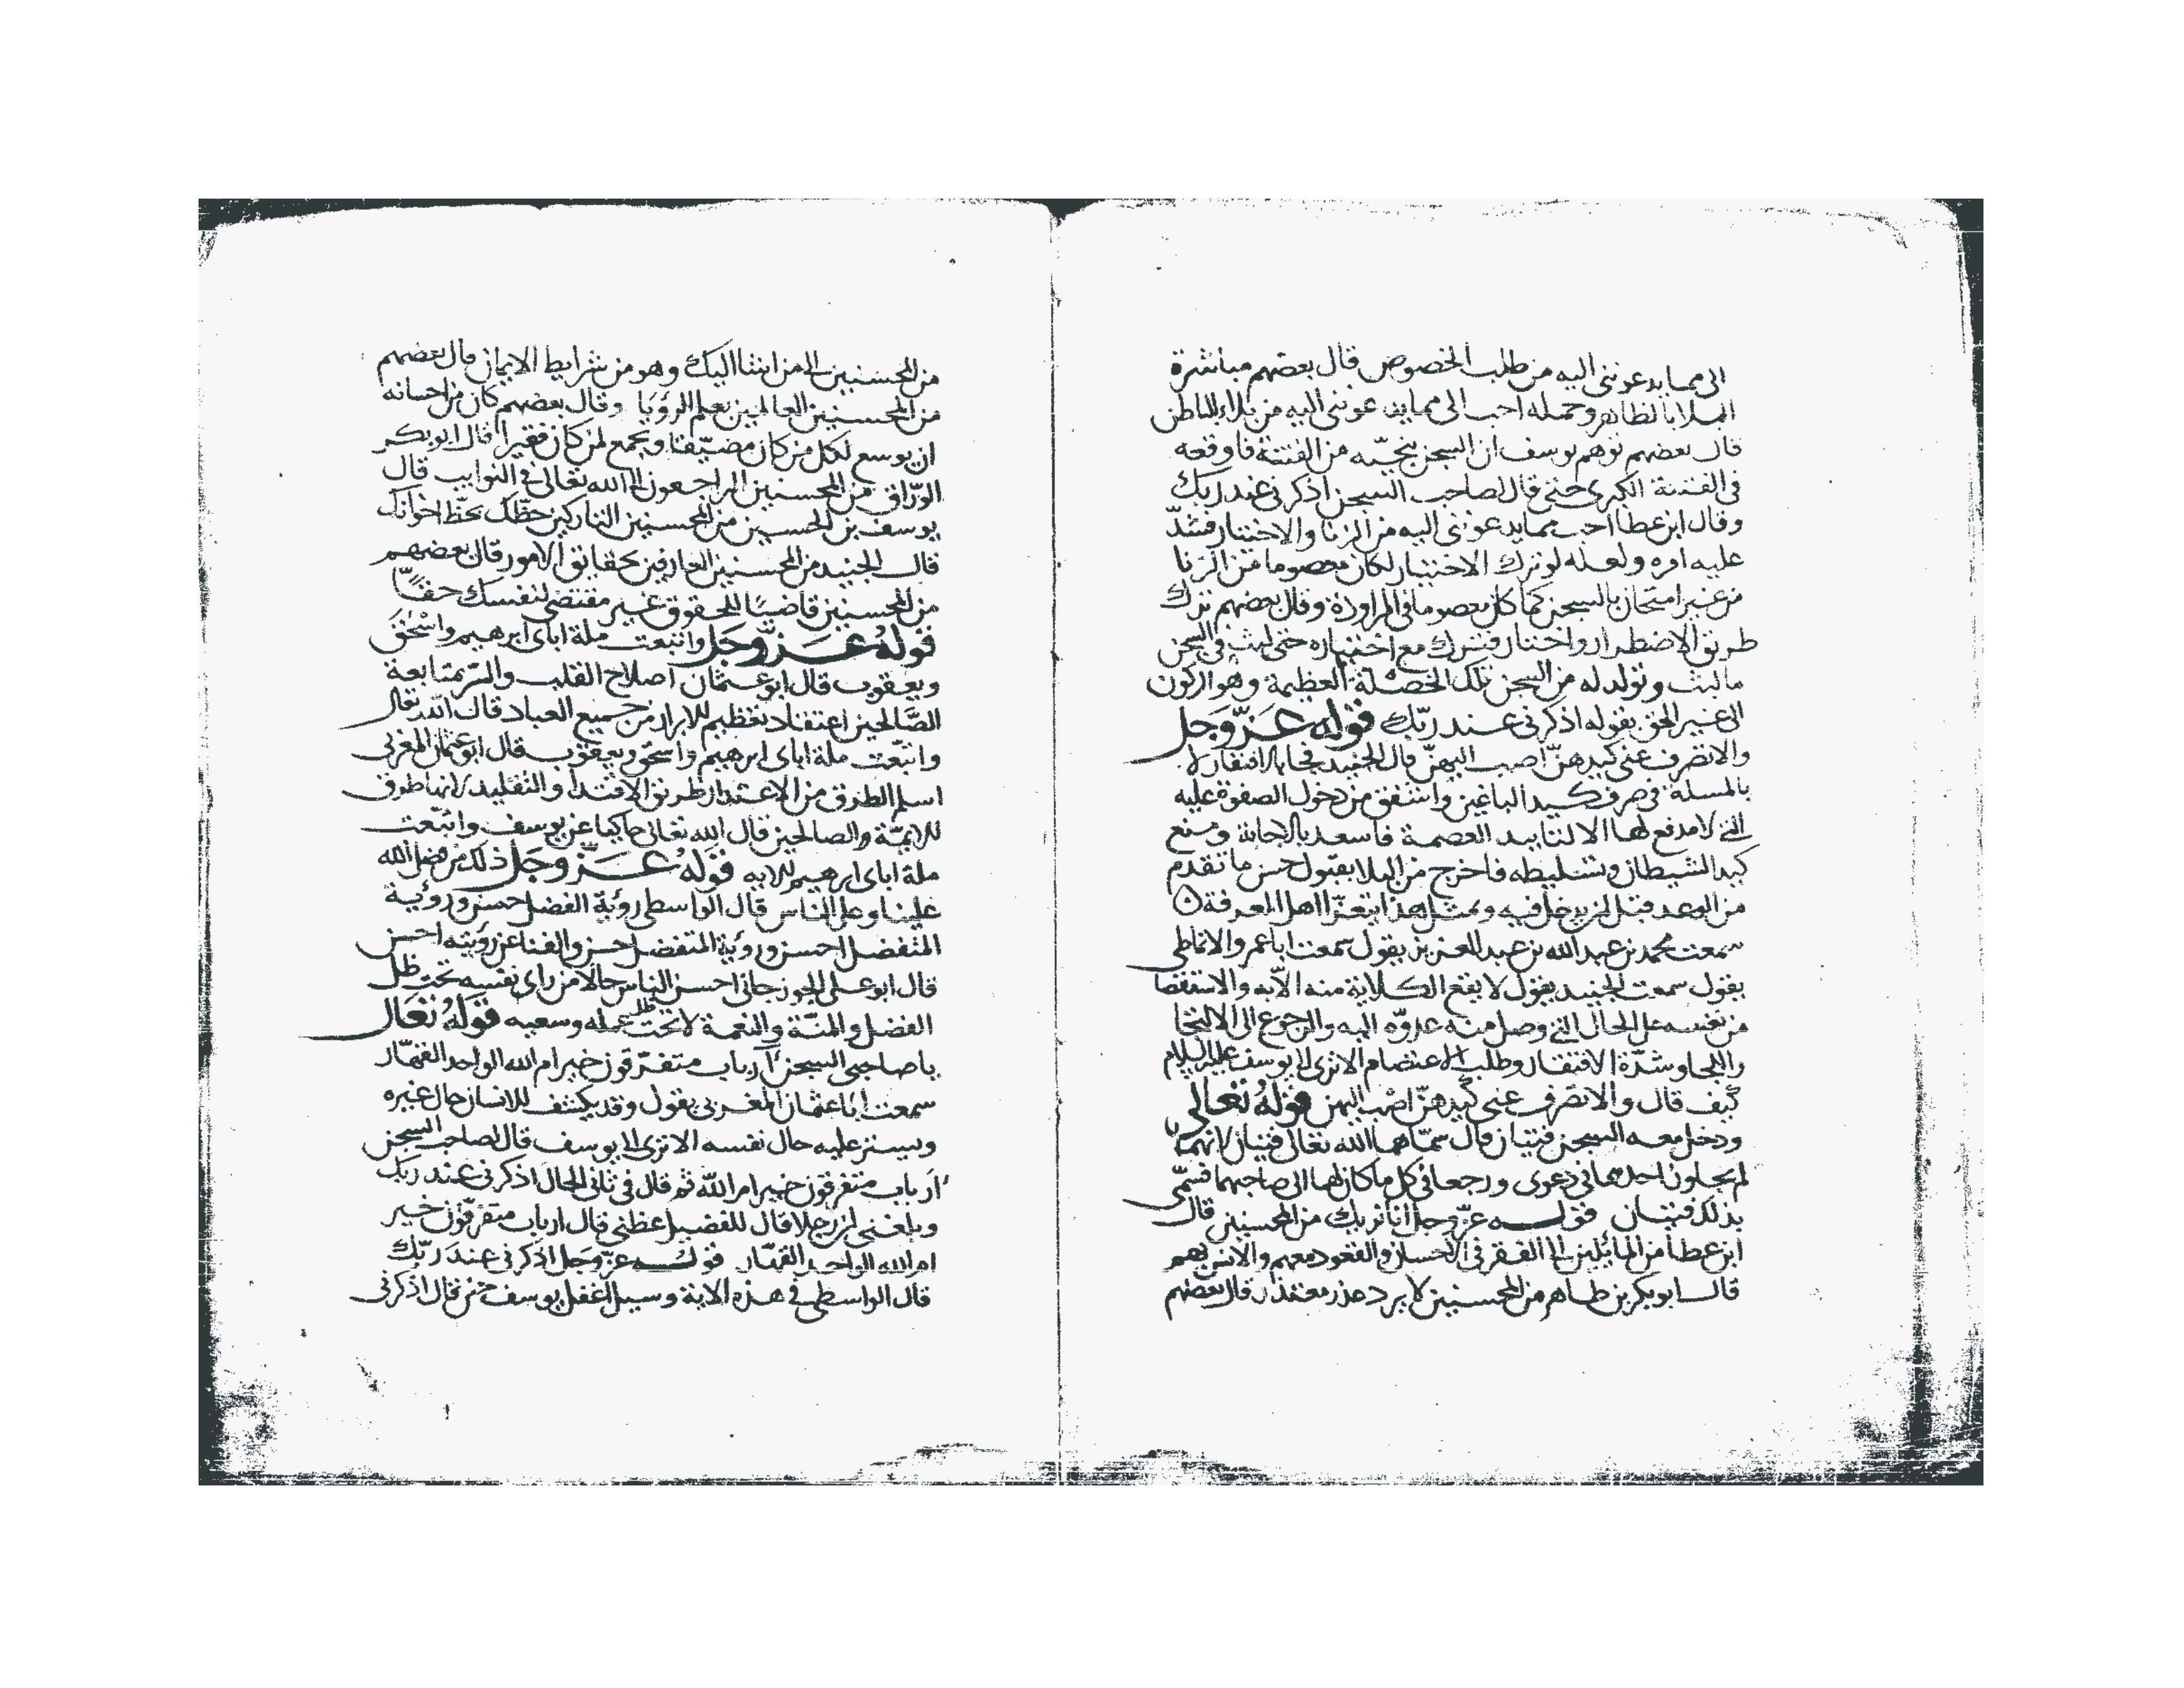 الى مما يدعوننى اليه من طلب الخصوص قال بعضهم مباشرة
البلا بالظاهر وحمله احب الى مما يدعوننى اليه من بلاء الباطن
قال بعضهم توهم يوسف ان السجن ينجيه من الفتنة فاوقعه
فى الفتنة الكبرى حتى قال لصاحب السجن اذكرنى عند ربك
وقال ابن عطا احب مما يدعوننى اليه من الزنا والاختيار فشدّ
عليه امره ولعله لو ترك الاختيار لكان معصوما من الزنا
من غير امتحان بالسجن كما كان معصوما فى المراودة وقال بعضهم ترك
طريق الاضطرار واختار فترك مع اختياره حتى لبث فى السجن
ما لبث وتولد له من السجن تلك الخصلة العظيمة وهو الركون
الى غير الحق بقوله اذكرنى عند ربّك قوله عزّ وجل
والا تصرف عنى كيدهنّ اصب اليهنّ قال الجنيد الافتقار
بالمسلة فى صرف كيد الباغين واشفق من دخول الصفوة عليه
التى لا مدفع لها الا لتاييد العصمة فاسعد بالاجابة ومنع
كيد الشيطان وتسليطه فاخرج من البلا بقبول حسن ما تقدم
من الوعد قبل ان يدخل فيه وبمثل هذا يتعزّا اهل المعرفة ۵
سمعت محمد بن عبد الله بن عبد العزيز يقول سمعت ابا عمر والانماطى
يقول سمعت الجنيد يقول لا يقع الكلاية منه الا به والاستقصا
من نفسه على الحال التى وصل منه عدوّه اليه والرجوع الى الالتجا
والالجا وشدّة الافتقار وطلب الاعتصام الا ترى الى يوسف عليه السلام
كيف قال والا تصرف عنى كيدهنّ اصب اليهن قوله تعالى
ودخل معه السجن فتيان قال سمّاهما الله تعالى فتيان لانهما
لم يحاون احدهما فى دعوى ورجعا فى كل ما كان لهما الى صاحبهما فسمّى
بذلك فتيان قوله عزّ وجل انا نريك من المحسنين قال
ابن عطا من المائلين الى الفقر فى الحسان والقعود معهم والانس بهم
قال ابو بكر بن طاهر من المحسنين لا يرد عذر معتذر قال بعضهم
من المحسنين الى من انبتا اليك وهو من شرايط الايمان قال بعضهم
من المحسنين العالمين بعلم الرؤيا وقال بعضهم كان من احسانه
ان يوسع لكل من كان مضيّقا ويجمع لمن كان فقيرا قال ابو بكر
الورّاق من المحسنين الراجعون الى الله تعالى فى النوايب قال
يوسف بن الحسين من المحسنين التاركين حظّك لحظّ اخوانك
قال الجنيد من المحسنين العارفين بحقايق الامور قال بعضهم
من المحسنين قاضيًا للحقوق غير مقتضى لنفسك حقًّا
قوله عزّ وجل واتبعت ملة اباى ابرهيم واسحق
ويعقوب قال ابو عثمان اصلاح القلب والسّر بمتابعة
الصّالحين اعتقاد تعظيم للابرار من جميع العباد قال الله تعالى
واتبّعت ملة اباى ابرهيم واسحق ويعقوب قال ابو عثمان المغربى
اسلم الطرق من الاعتدار طريق الاقتدا والتقليد لانها طرق
للايمّة والصالحين قال الله تعالى حاكيا عن يوسف واتبّعت
ملة اباى ابرهيم للايه قوله عزّ وجل ذلك من فضل الله
علينا وعلى الناس قال الواسطى رؤية الفضل حسن ورؤية
المتفضل احسن ورؤية المتفضل حسن والفنا عن رؤيته احسن
قال ابو على الجوزجانى احسن الناس حالا من راى نفسه تحت ظل
الفضل والمنّة والنعمة لا تحت ظل عمله وسعيه قوله تعالى
يا صاحبى السجن أارباب متفرّقون خير ام الله الواحد القهّار
سمعت ابا عثمان المغربى يقول وقد يكشف للانسان حال غيره
ويستر عليه حال نفسه الا ترى الى يوسف قال لصاحب السجن
أارباب متفرقون خير ام الله ثم قال فى ثانى الحال اذكرنى عند ربك
وبلغنى ان رجلا قال للفضيل عظنى قال ارباب متفرّقون خير
ام الله الواحد القهّار قوله عزّ وجل اذكرنى عند ربّك
قال الواسطى فى هذه الاية وسيل اغفل يوسف حين قال اذكرنى